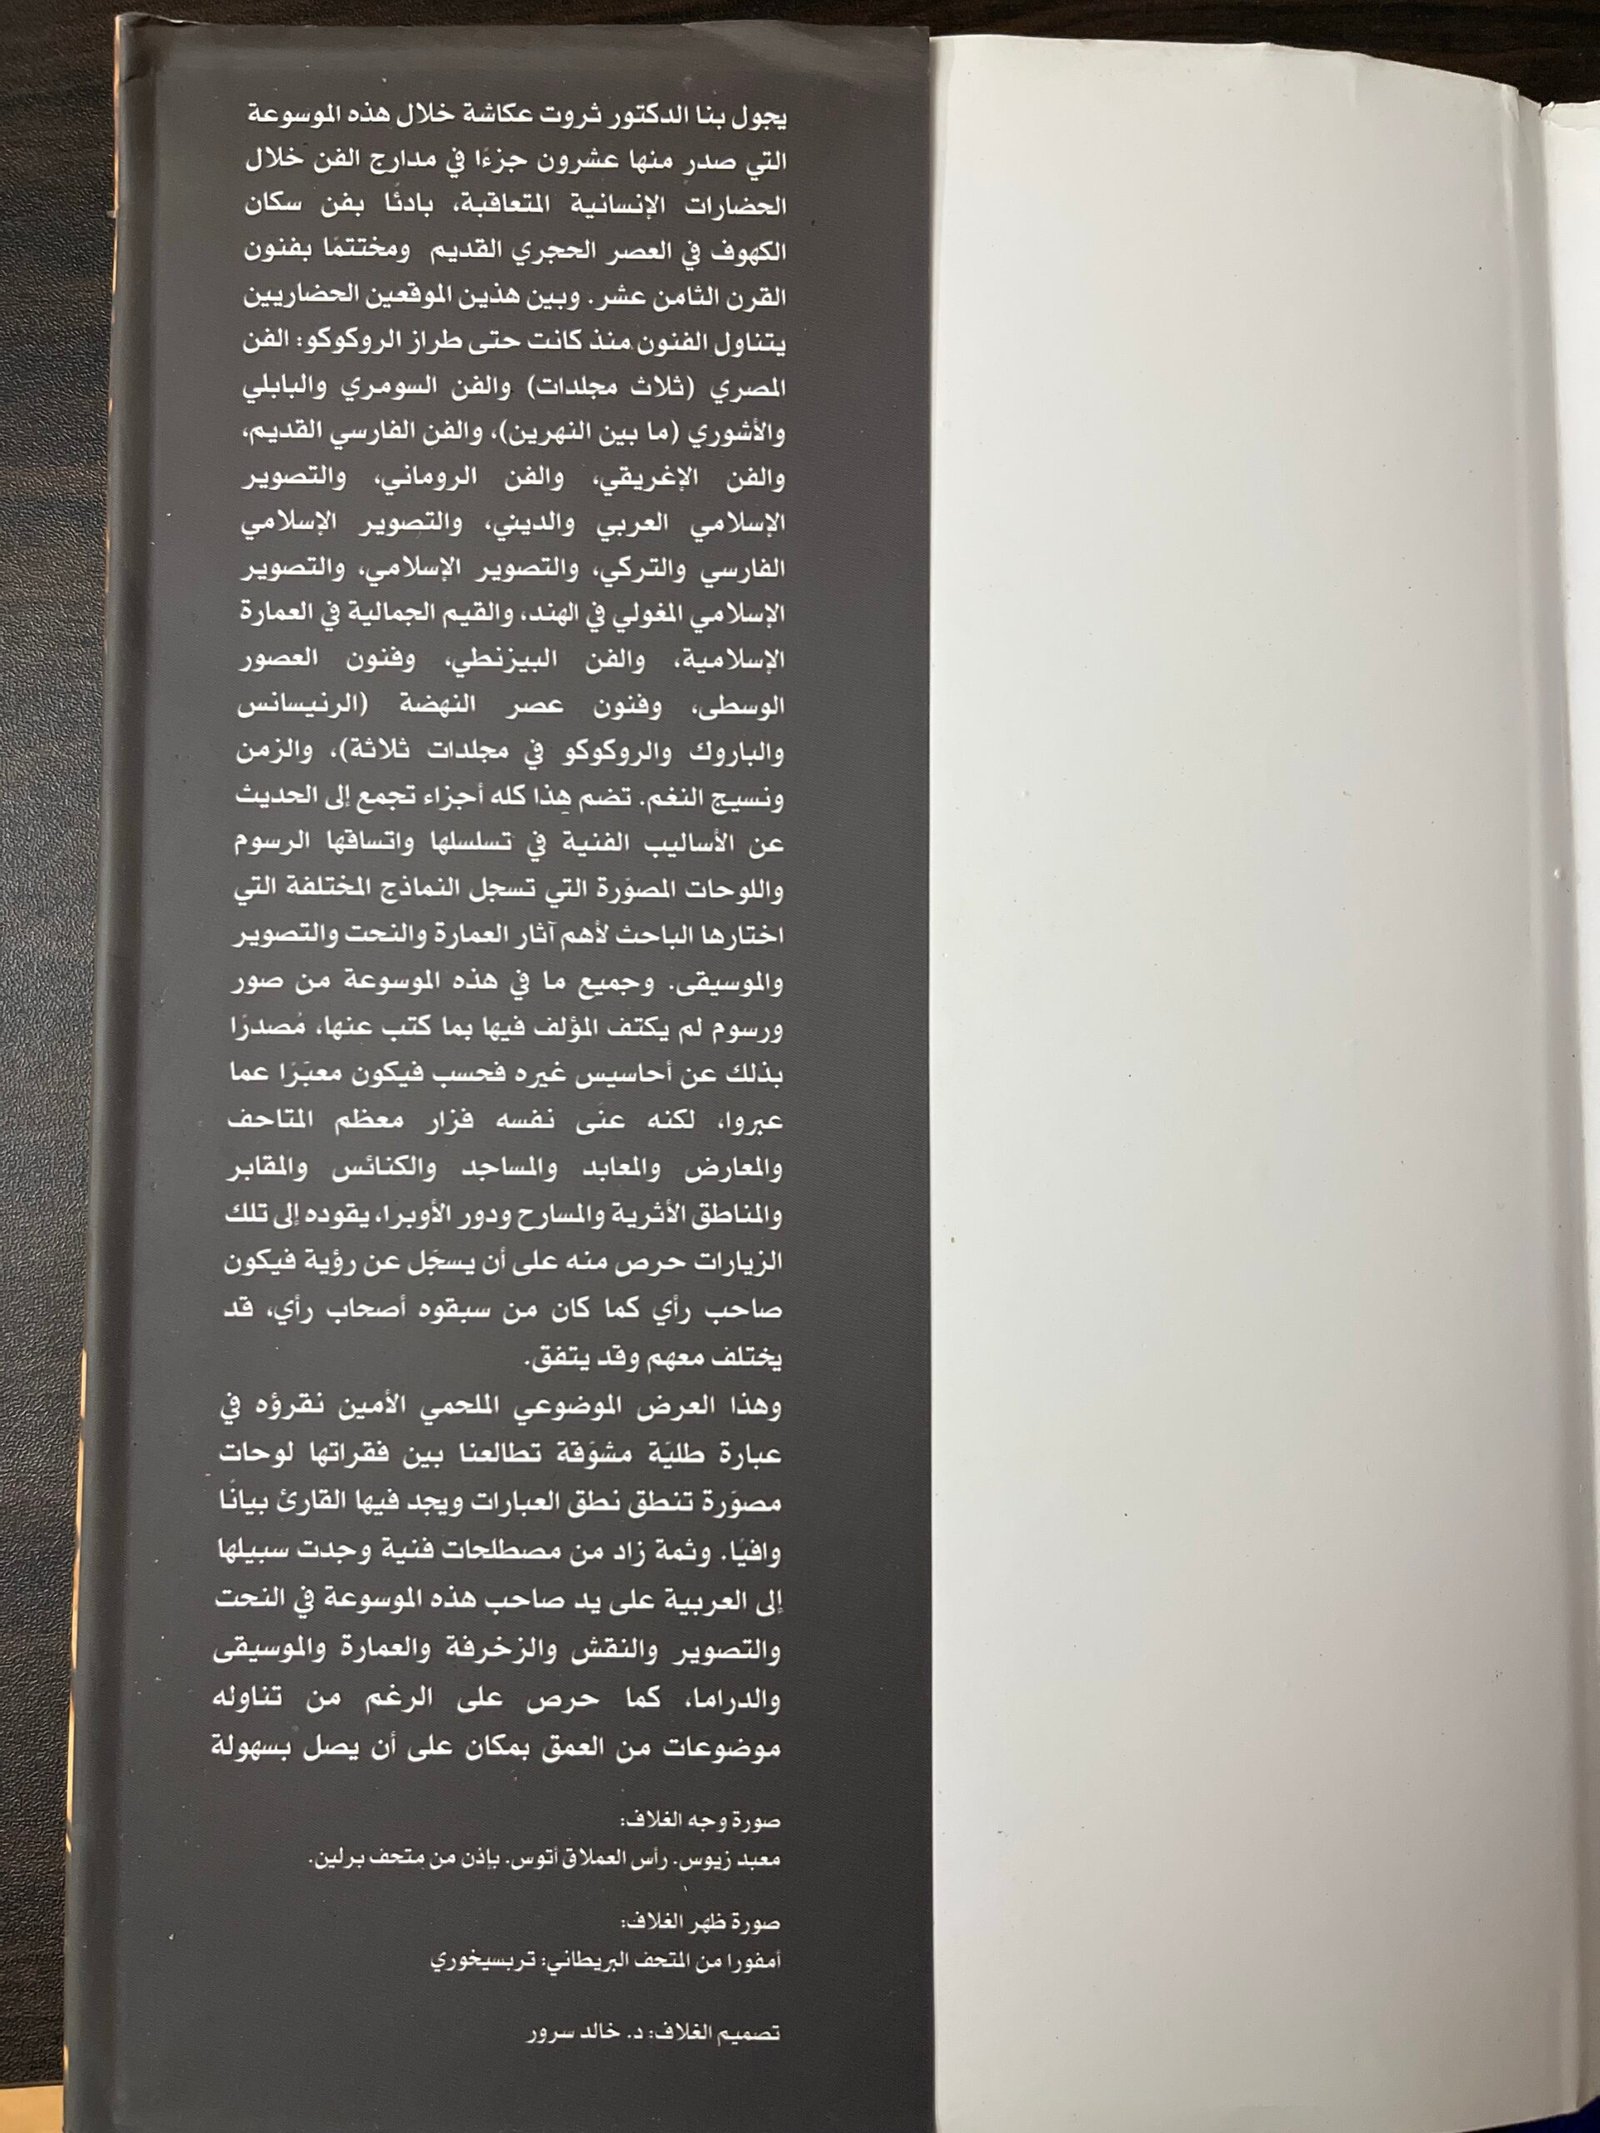 يجول بنا الدكتور ثروت عكاشة خلال هذه الموسوعة
التي صدر منها عشرون جزءًا في مدارج الفن خلال
الحضارات الإنسانية المتعاقبة، بادئًا بفن سكان
الكهوف في العصر الحجري القديم ومختتمًا بفنون
القرن الثامن عشر. وبين هذين الموقعين الحضاريين
يتناول الفنون منذ كانت حتى طراز الروكوكو: الفن
المصري (ثلاث مجلدات) والفن السومري والبابلي
والأشوري (ما بين النهرين)، والفن الفارسي القديم،
والفن الإغريقي، والفن الروماني، والتصوير
الإسلامي العربي والديني، والتصوير الإسلامي
الفارسي والتركي، والتصوير الإسلامي، والتصوير
الإسلامي المغولي في الهند، والقيم الجمالية في العمارة
الإسلامية، والفن البيزنطي، وفنون العصور
الوسطى، وفنون عصر النهضة (الرنيسانس
والباروك والروكوكو في مجلدات ثلاثة)، والزمن
ونسيج النغم. تضم هذا كله أجزاء تجمع إلى الحديث
عن الأساليب الفنية في تسلسلها واتساقها الرسوم
واللوحات المصوّرة التي تسجل النماذج المختلفة التي
اختارها الباحث لأهم آثار العمارة والنحت والتصوير
والموسيقى. وجميع ما في هذه الموسوعة من صور
ورسوم لم يكتف المؤلف فيها بما كتب عنها، مُصدرًا
بذلك عن أحاسيس غيره فحسب فيكون معبّرًا عما
عبروا، لكنه عنّى نفسه فزار معظم المتاحف
والمعارض والمعابد والمساجد والكنائس والمقابر
والمناطق الأثرية والمسارح ودور الأوبرا، يقوده إلى تلك
الزيارات حرص منه على أن يسجّل عن رؤية فيكون
صاحب رأي كما كان من سبقوه أصحاب رأي، قد
يختلف معهم وقد يتفق.
وهذا العرض الموضوعي الملحمي الأمين نقرؤه في
عبارة طليّة مشوّقة تطالعنا بين فقراتها لوحات
مصوّرة تنطق نطق العبارات ويجد فيها القارئ بيانًا
وافيًا. وثمة زاد من مصطلحات فنية وجدت سبيلها
إلى العربية على يد صاحب هذه الموسوعة في النحت
والتصوير والنقش والزخرفة والعمارة والموسيقى
والدراما، كما حرص على الرغم من تناوله
موضوعات من العمق بمكان على أن يصل بسهولة
صورة وجه الغلاف:
معبد زيوس. رأس العملاق أتوس. بإذن من متحف برلين.
صورة ظهر الغلاف:
أمفورا من المتحف البريطاني: تربسيخوري
تصميم الغلاف: د. خالد سرور